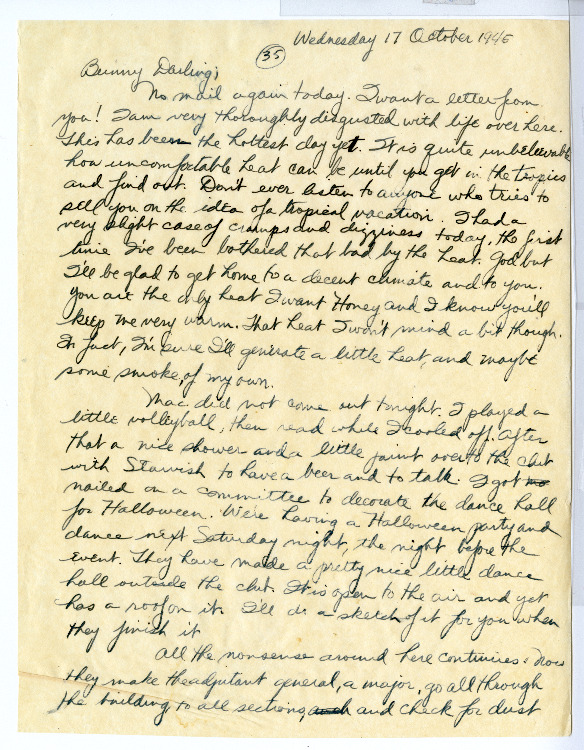 Wednesday 17 October 1945
(35)
Bunny Darling;
No mail again today. I want a letter from
you! I am very thoroughly disgusted with life over here.
This has been the hottest day yet. It is quite unbelievable
how uncomfortable heat can be until you get in the tropics
and find out. Don't ever listen to anyone who tries to
sell you on the idea of a tropical vacation. I had a
very slight case of cramps and dizziness today, the first
time I've been bothered that bad by the heat. God but
I'll be glad to get home to a decent climate and to you.
You are the only heat I want Honey and I know you'll
keep me very warm. That heat I won't mind a bit though.
In fact, I'm sure I'll generate a little heat, and maybe
some smoke, of my own.
Mac did not come out tonight. I played a
little volleyball, then read while I cooled off. After
that a nice shower and a little jaunt over to the club
with Stawish to have a beer and to talk. I got
nailed on a committee to decorate the dance hall
for Halloween. We're having a Halloween party and
dance next Saturday night, the night before the
event. They have made a pretty nice little dance
hall outside the club. It is open to the air and yet
has a roof on it. I'll do a sketch of it for you when
they finish it
All the nonsense around here continues. Now
they make the adjutant general, a major, go all through
the building to all sections, and check for dust